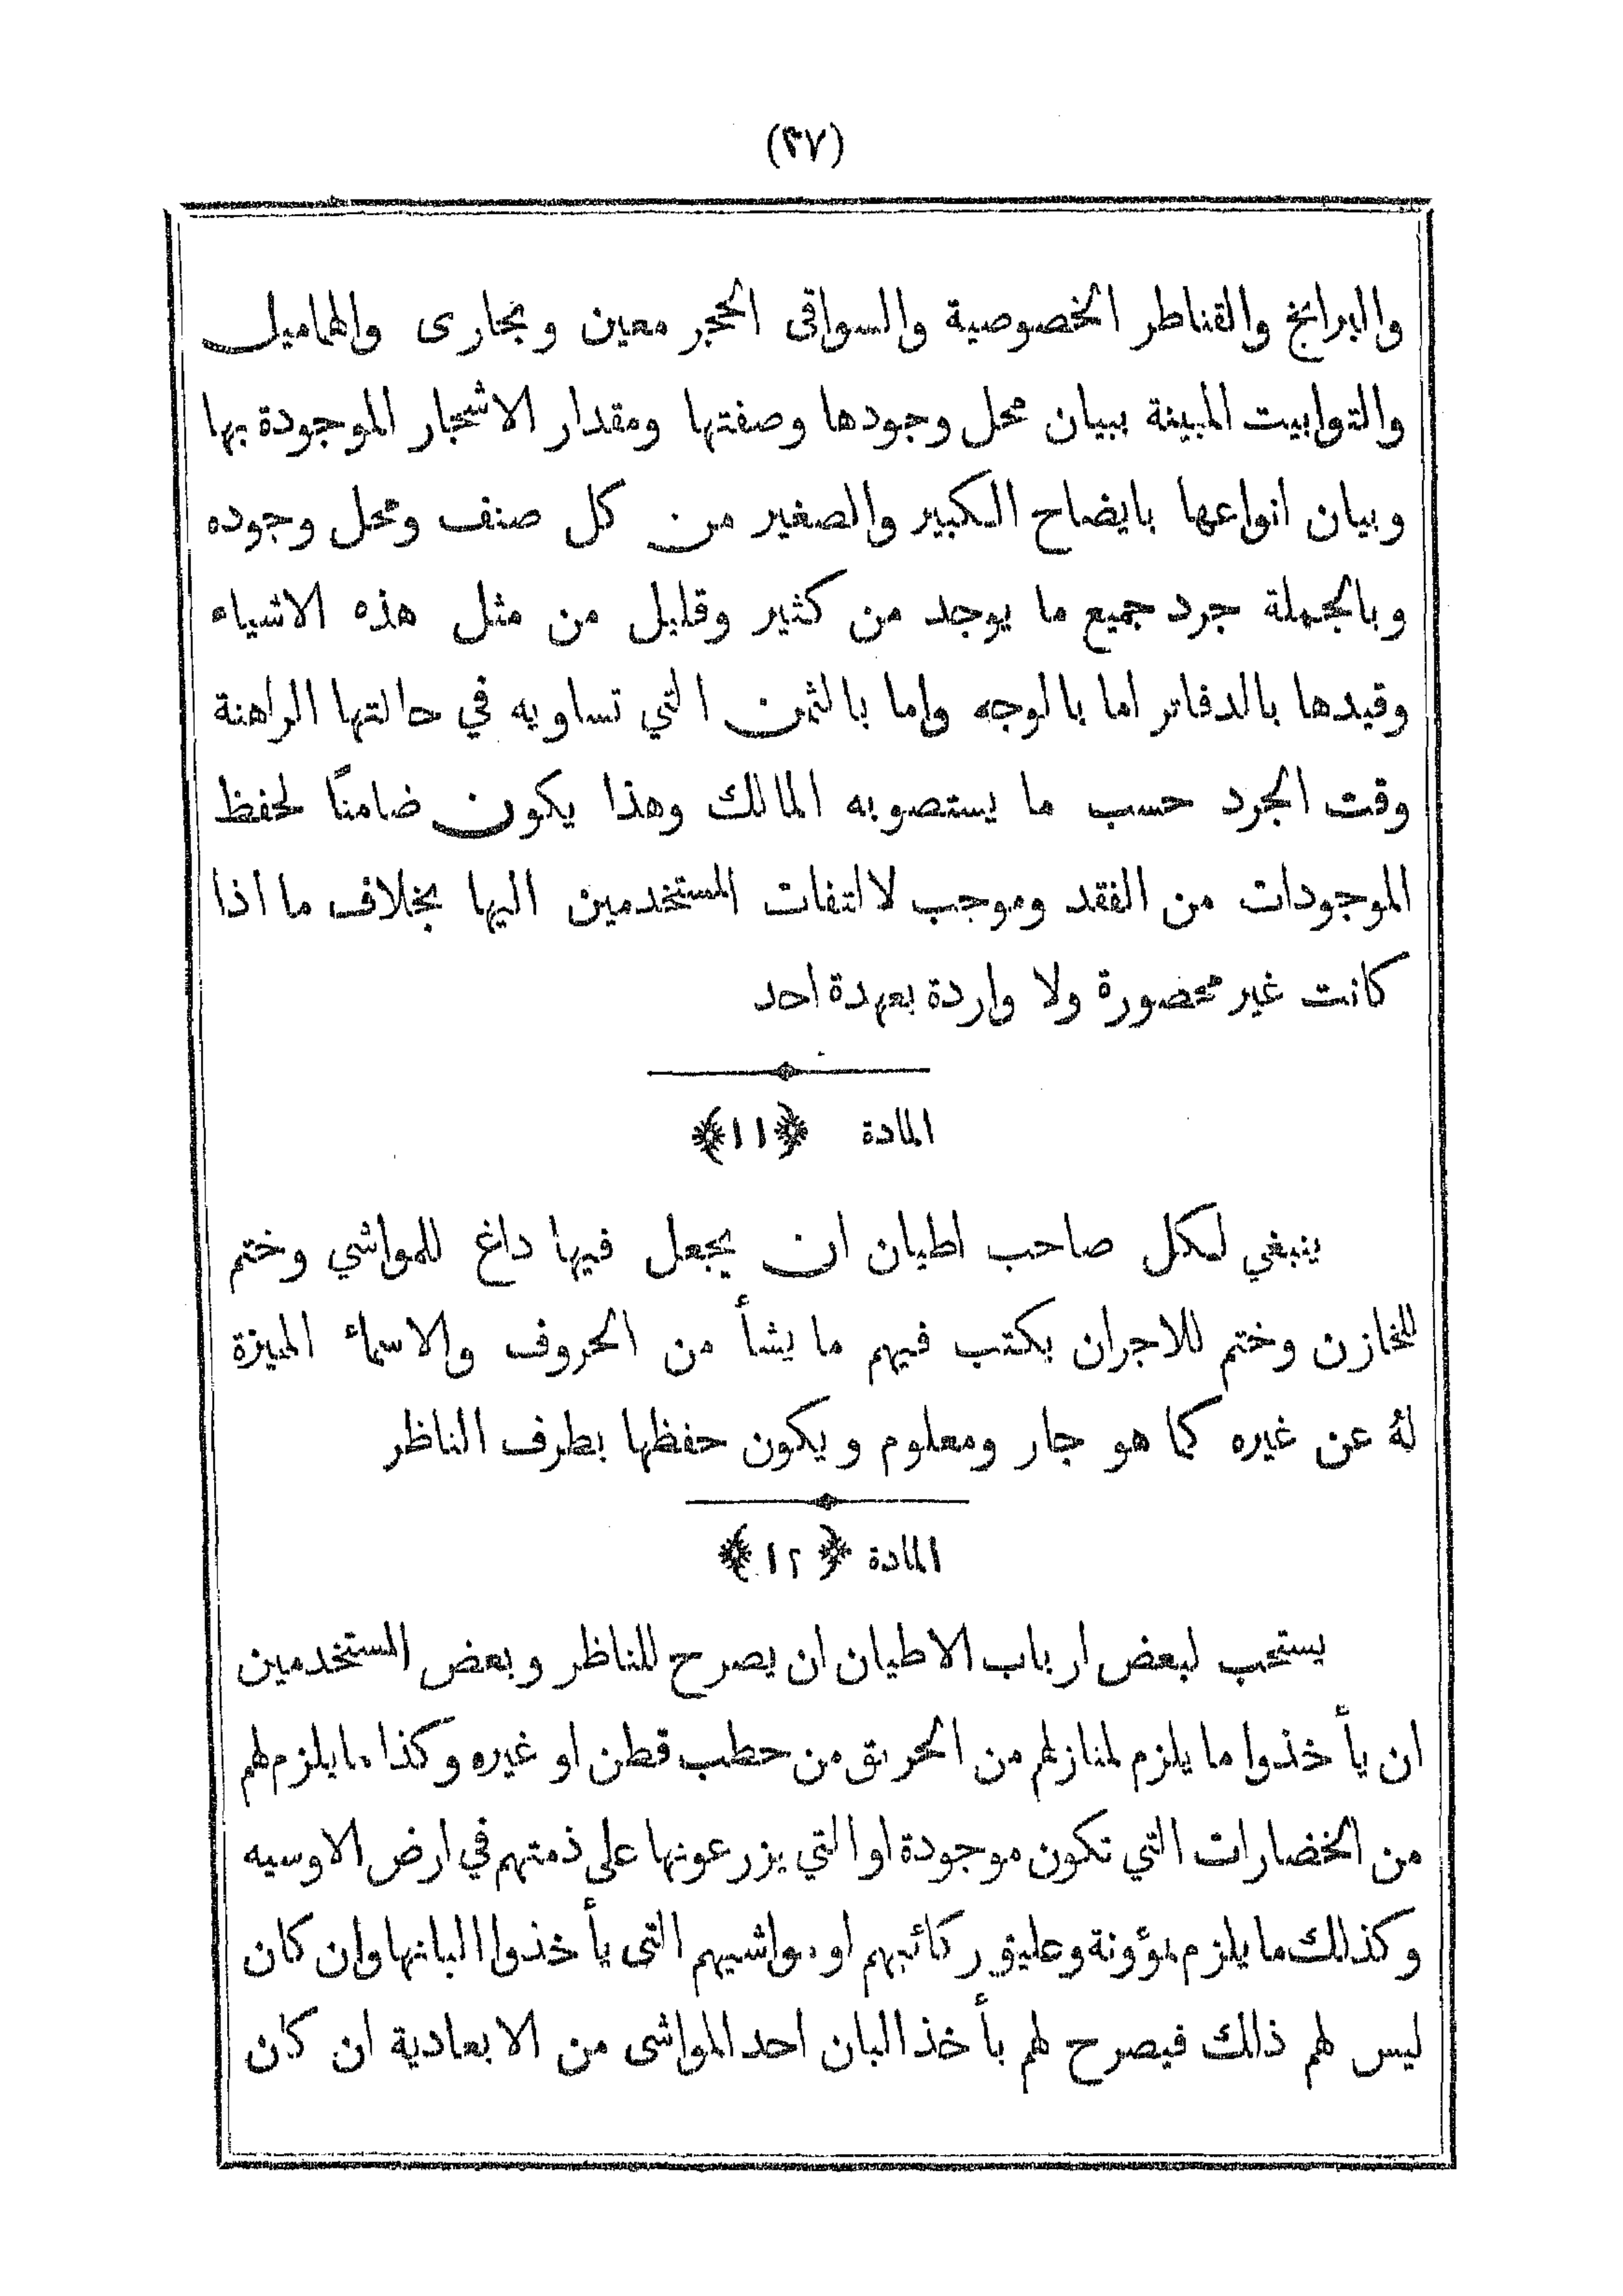 (٣٧)
والبرابخ والقناطر الخصوصية والسواقى الحجر معين وبجارى والهماميل
والتوابيت المبينة ببيان محل وجودها وصفتها ومقدار الاشجار الموجودة بها
وبيان انواعها بايضاح الكبير والصغير من كل صنف ومحل وجوده
وبالجملة جرد جميع ما يوجد من كثير وقليل من مثل هذه الاشياء
وقيدها بالدفاتر اما بالوجه واما بالثمن التي تساويه في حالتها الراهنة
وقت الجرد حسب ما يستصوبه المالك وهذا يكون ضامنًا لحفظ
الموجودات من الفقد وموجب لالتفات المستخدمين اليها بخلاف ما اذا
كانت غير محصورة ولا واردة بعهدة احد
المادة ﴿١١﴾
ينبغي لكل صاحب اطيان ان يجعل فيها داغ للمواشي وختم
للمخازن وختم للاجران يكتب فيهم ما يشأ من الحروف والاسماء المميزة
لهُ عن غيره كما هو جار ومعلوم ويكون حفظها بطرف الناظر
المادة ﴿١٢﴾
يستحب لبعض ارباب الاطيان ان يصرح للناظر وبعض المستخدمين
ان يأخذوا ما يلزم لمنازلهم من الحريق من حطب قطن او غيره وكذا ما يلزم لهم
من الخضارات التي تكون موجودة او التي يزرعونها على ذمتهم في ارض الاوسيه
وكذلك ما يلزم لمؤونة وعليق ركائبهم او مواشيهم التى يأخذوا البانها وان كان
ليس لهم ذلك فيصرح لهم بأخذ البان احد المواشى من الابعادية ان كان